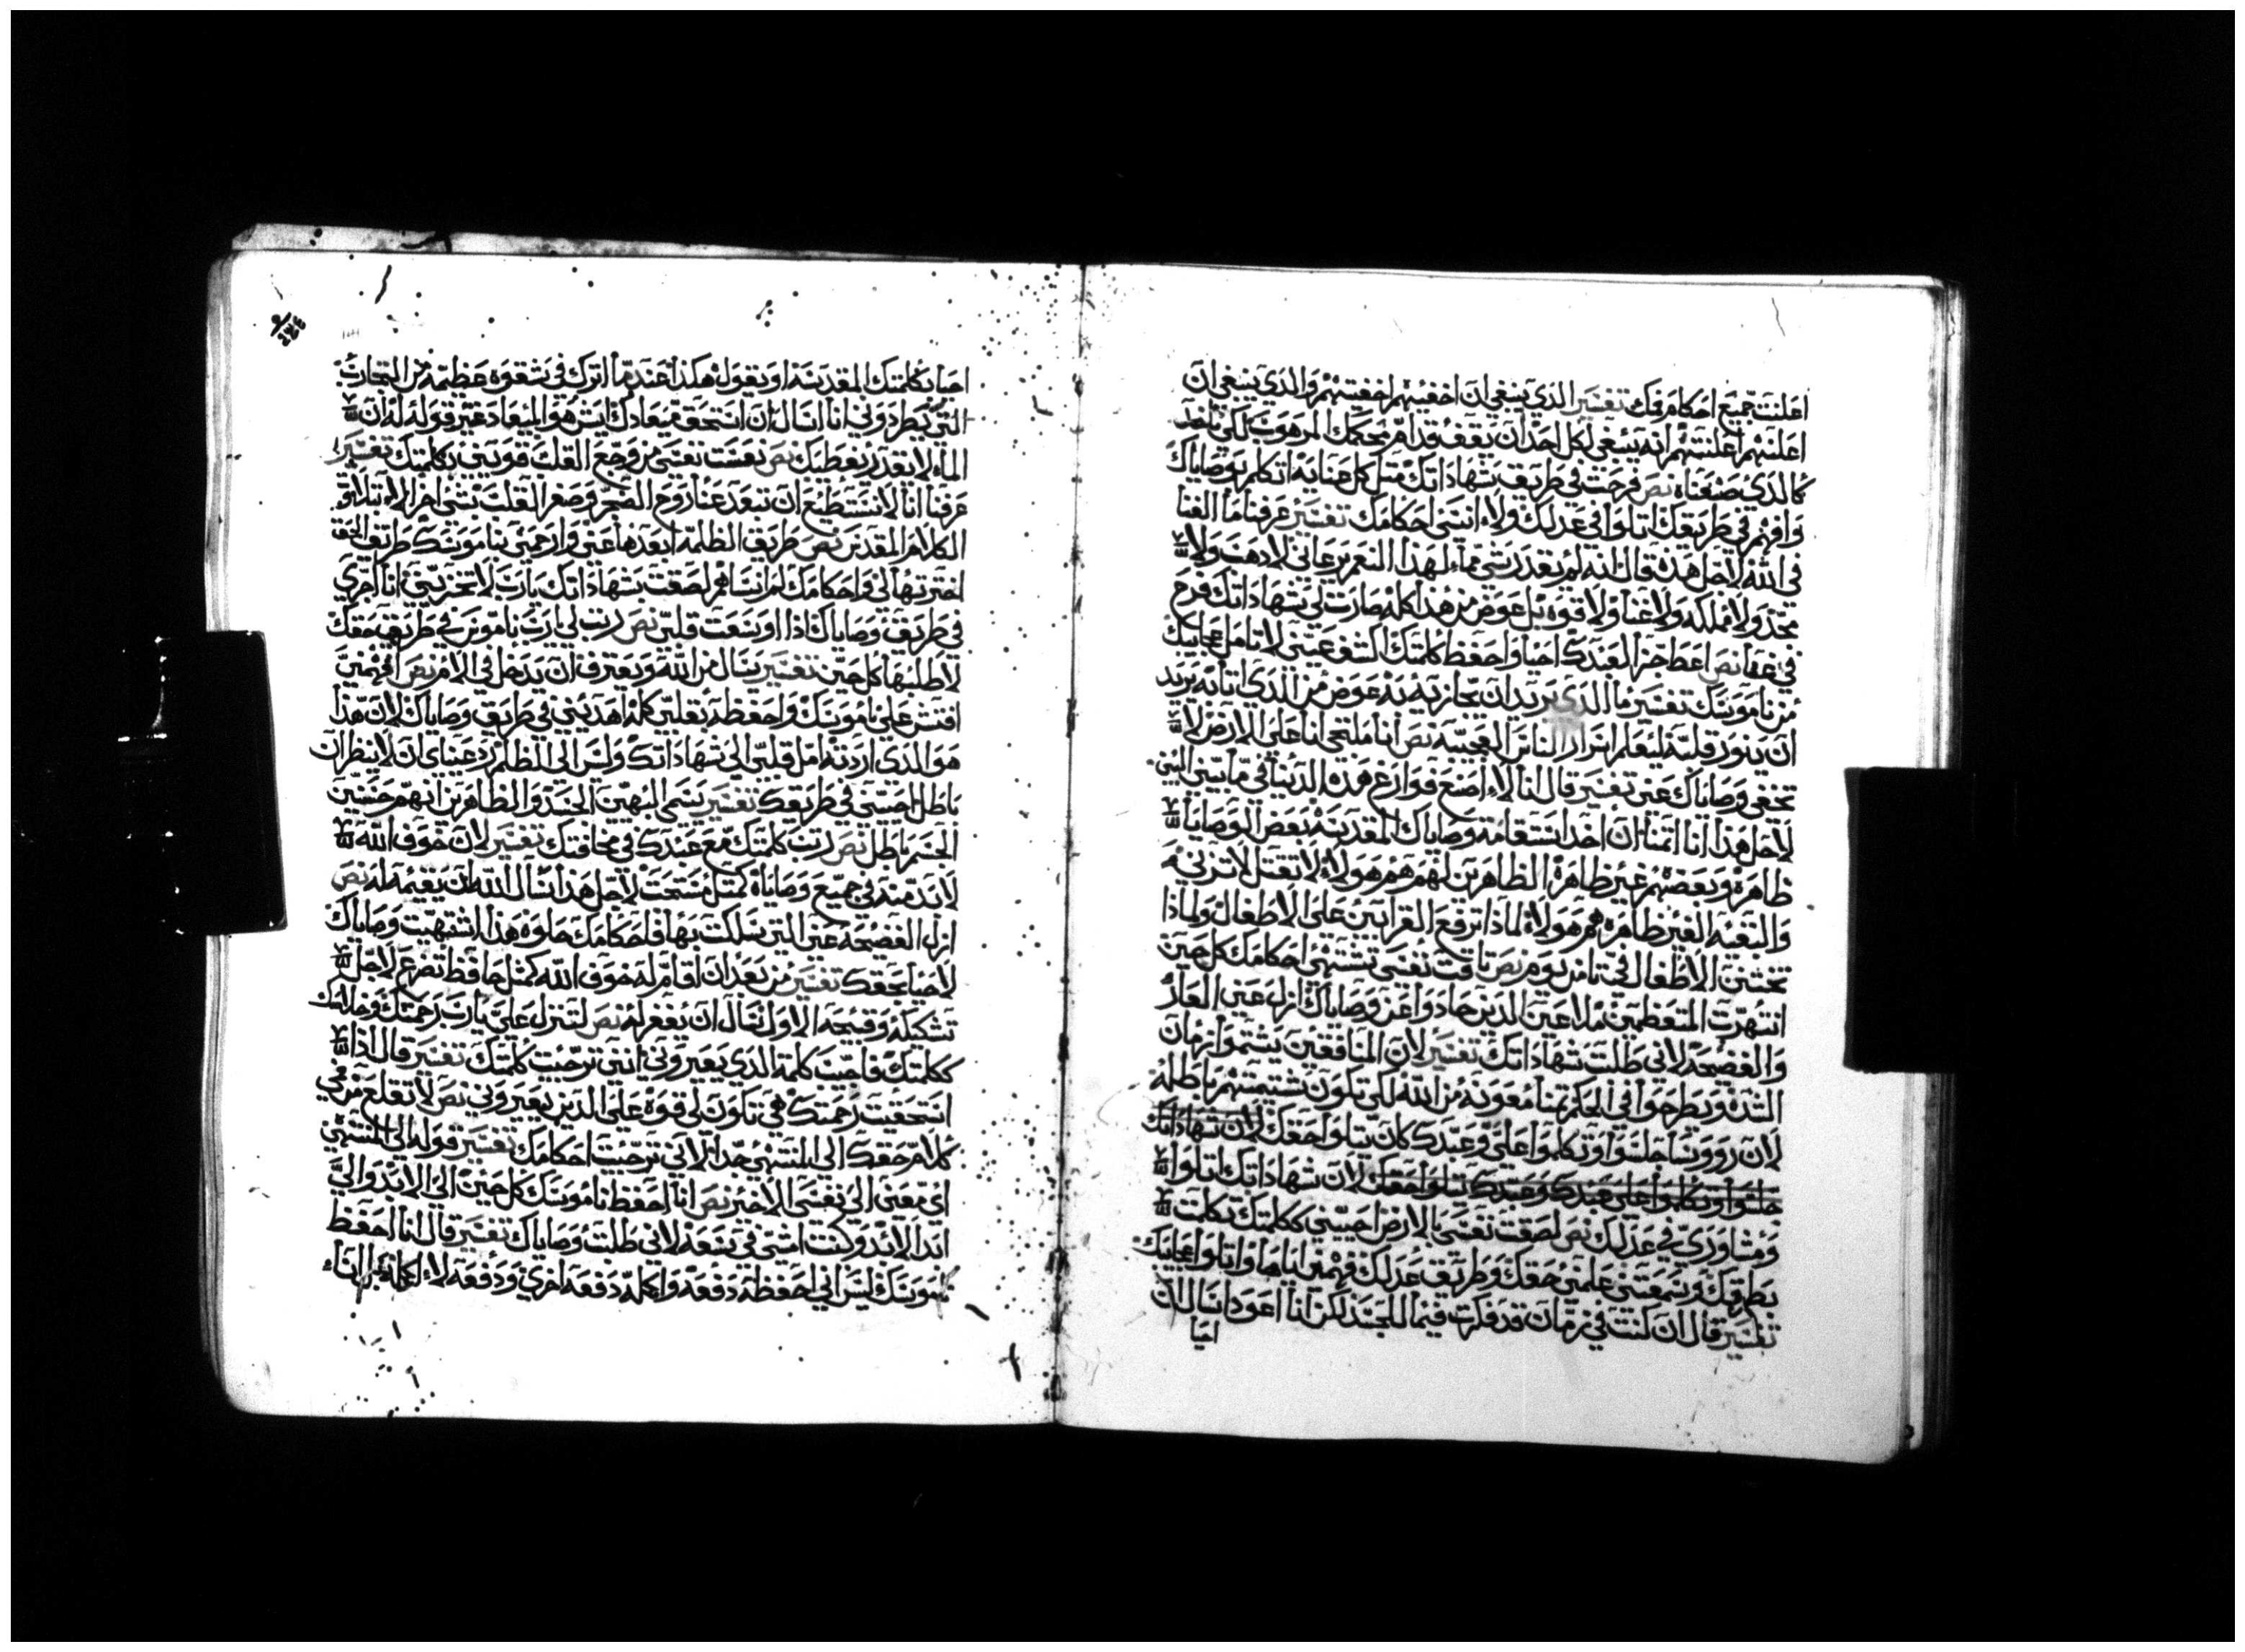 اعلنت جميع احكام فمك تفسير الذي ينبغي ان اخفيهم اخفيتهم والذي ينبغي ان
اعلنهم اعلنتهم انه ينبغي لكل احد ان يقف قدام محكمك المرهوب لكي ياخد
كالذي صنعناه نص فرحت في طريق شهاداتك مثل كل غنايه اتكلم بوصاياك
وافهم في طريقك اتلوا في عدلك ولا انسى احكامك تفسير عرفنا ما الغنا
في الله لاجل هذه قال انه لم يقدر شي مما لهذا النعم يرعاني لا دهب ولا
مجد ولا مملكه ولا غنا ولا قوه بل عوض من هذا كله صارت لي شهاداتك فرح
في عفا نص اعط جزا لعبدك احيا واحفظ كلمتك اكشف عيني لاتامل عجايبك
من ناموسك تفسير ما الذي يريد ان يجازيه به عوض من الذي اتا به يريد
ان ينور قلبه ليعلم اسرار الناس العجيبه نص انا ملتجي انا على الارض لا
تخفي وصاياك عني تفسير قال انا لا اصنع فوارغ هذه الدنيا في ما بيني
لاجل هذا انا اتمنا ان اخد استقامة وصاياك المقدسه بعض الوصايا
ظاهره وبعضهم غير ظاهرة الظاهرين لهم هم هولاء لا تقتل لا تزني
والبقيه الغير ظاهره هم هولاء لماذا ترفع القرابين على الاطفال ولماذا
تختن الاطفال في تامن يوم نص تاقت نفسي تشتهي احكامك كل حين
انتهرت المتعظمين ملاعين الذين حادوا عن وصاياك ازل عني العار
والفضيحه لاني طلبت شهاداتك تفسير لان المنافقين يشتموا زمان
الشده ويطرحوا في الحكم تمنا معونه من الله لكي تكون شتيمتهم باطله
لان روونسا جلسوا وتكلموا علي وعبدك كان يتلوا حقك لان شهاداتك
جلسوا وتكلموا على عبدك وعبدك يتلوا حقك لان شهاداتك اتلوا
ومشاورتي في عدلك نص لصقت نفسي بالارض احييني ككلمتك تكلمت
بطرقك وسمعتني علمني حقك وطريق عدلك فهمني اياها واتلوا عجايبك
تفسير قال ان كنت في زمان قد فكرت فيما للجسد لكن انا اعود اسال ان
احيا
احيا بكلمتك المقدسه او يقول هكذا عندما اترك في شقوه عظيمه من التجارب
التي يطردوني انا اسال ان استحق ميعادك ايش هو الميعاد غير قوله له ان
الماء لا يقدر يعطيك نص نعست نفسي من وجع القلب قويني بكلمتك تفسير
عرفنا انا لا نستطيع ان نبعد عنا روح الضجر وصغر القلب بشي اخر الا بتلاوة
الكلام المقدس نص طريق الظلمه ابعدها عني وارحمني بناموسك طريق الحق
اخترتها لي واحكامك لم انساهم لصقت بشهاداتك يارب لا تخزيني انا اجري
في طريق وصاياك اذا اوسعت قلبي نص رتب لي يارب ناموس في طريق حقك
لاطلبها كل حين تفسير يسال من الله ويعترف ان يدخل في الامر نص افهمني
افتش على ناموسك واحفظه بقلبي كله اهديني في طريق وصاياك لان هذا
هو الذي اردته امل قلبي الى شهاداتك وليس الى الظلم رد عيناي ان لا ينظران
باطل احييني في طريقك تفسير يسمى البهيين الجسد والظاهرين انهم حسنين
الجسم باطل نص رتب كلمتك مع عبدك في مخافتك تفسير لان خوف الله
لابد منه في جميع وصاياه كمثل مستحب لاجل هذا نسال الله ان يقيمه له نص
ازل الفضيحه عني التي سلكت بها فاحكامك حلوه هذا اشتهيت وصاياك
لاحيا بحقك تفسير من بعد ان اقام له خوف الله كمثل حافظ تضرع لاجل
تشكيله وقبيحه الاول نسال ان يغفر له نص لتنزل علي يارب رحمتك وخلاصك
ككلمتك فاجيب كلمه الذي يعيروني انني ترجيت كلمتك تفسير قال اذا
استحقيت رحمتك هي تكون لي قوه على الذين يعيروني نص لا تقلع من في
كلام حقك الى المنتهى جدا لاني ترجيت احكامك تفسير قوله الى المنتهى
اي معنى الى نفسي الاخير نص انا احفظ ناموسك كل حين الى الابد والى
ابد الابد وكنت امشي في سعه لاني طلبت وصاياك تفسير قال انا احفظ
ناموسك ليس اني احفظه دفعه واكمله دفعه اخري ودفعه لا اكمله